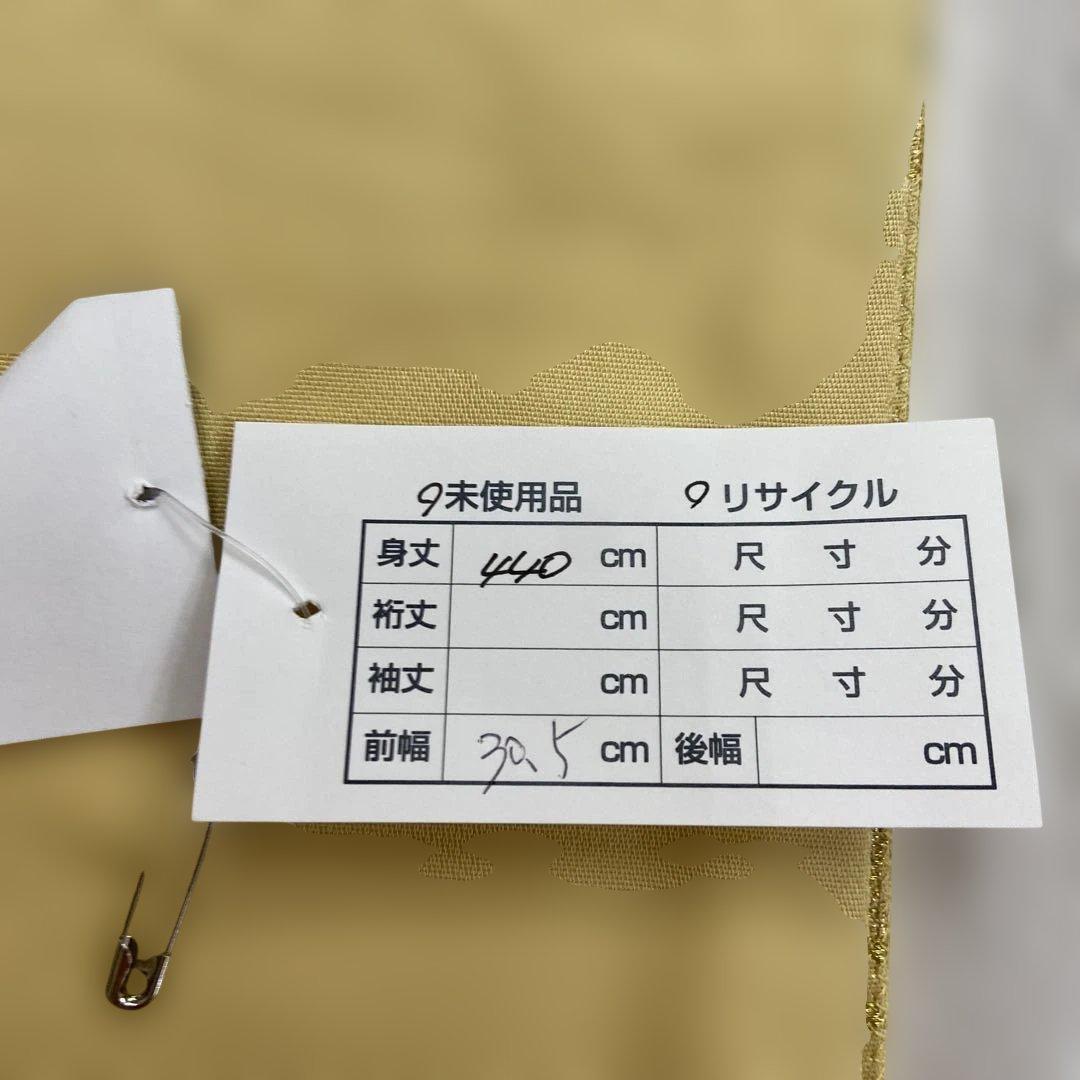 9未使用品 9リサイクル
身丈 440 cm 尺 寸 分
裄丈 cm 尺 寸 分
袖丈 cm 尺 寸 分
前幅 30.5 cm 後幅 cm